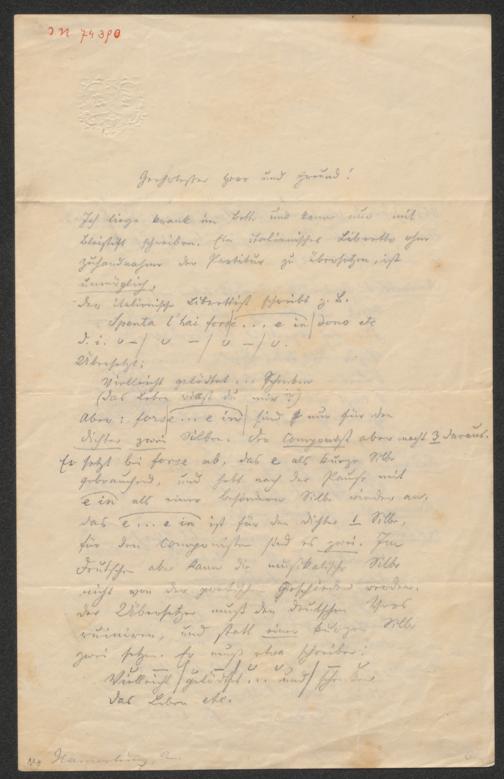 IN 74390
Geehrtester Herr und Freund!
Ich liege krank im Bett und kann nur mit
Bleistift schreiben. Ein italienisches Libretto ohne
Zuhandnahme der Partitur zu übersetzen, ist
unmöglich.
Der italienische Librettist schreibt z. B.
Spenta l'hai forse ... e in dono etc
d. i. u – / u – / u – / u.
Übersetzt:
Vielleicht getödtet ... Schenken
(das Leben willst du mir?)
Aber: forse ... e in sind nur für den
Dichter zwei Silben. Der Componist aber macht 3 daraus.
Er setzt bei forse ab, das e als kurze Silbe
gebrauchend, und hebt nach der Pause mit
e in als einer besondern Silbe wieder an.
Das e ... e in ist für den Dichter 1 Silbe,
für den Componisten sind es zwei. Im
Deutschen aber kann die musikalische Silbe
nicht von der poetischen geschieden werden.
Der Übersetzer muß den deutschen Vers
ruiniren, und statt einer kurzen Silbe
zwei setzen. Er muß etwa schreiben:
Vielleicht / getödtet ... und / schenken
das Leben etc.
Hamerling, R.